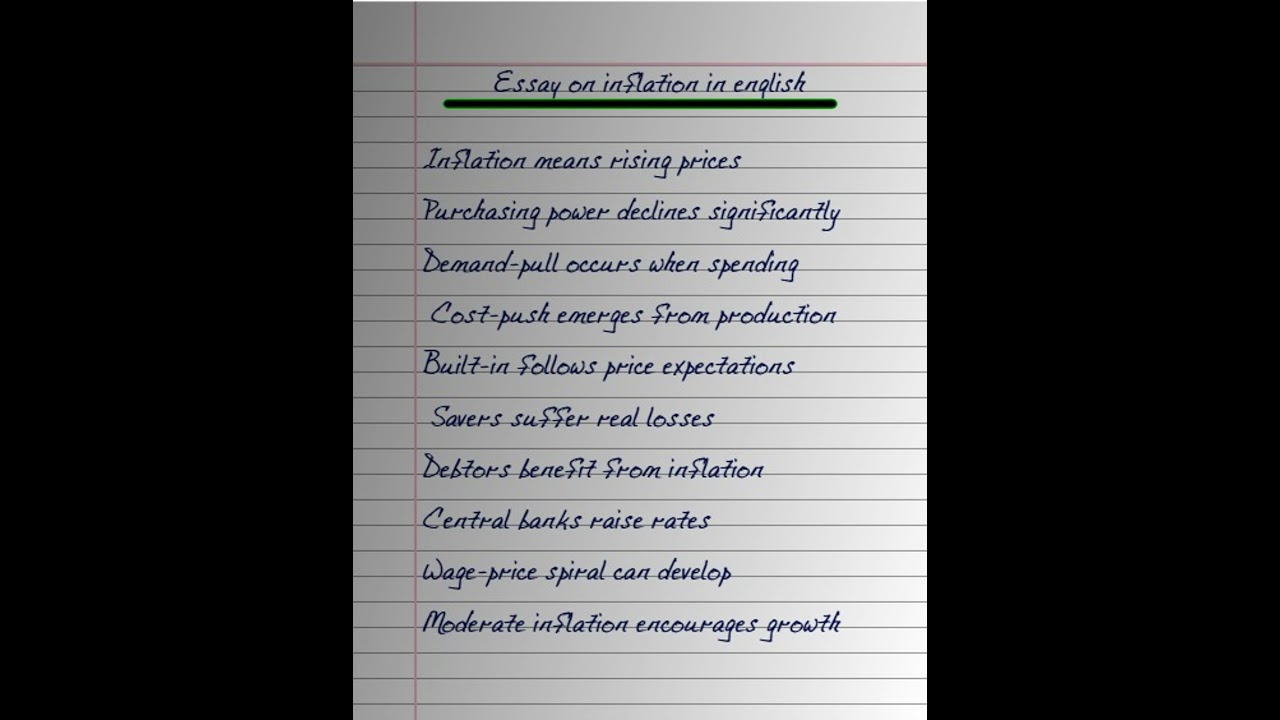 Essay on inflation in english
Inflation means rising prices
Purchasing power declines significantly
Demand-pull occurs when spending
Cost-push emerges from production
Built-in follows price expectations
Savers suffer real losses
Debtors benefit from inflation
Central banks raise rates
Wage-price spiral can develop
Moderate inflation encourages growth